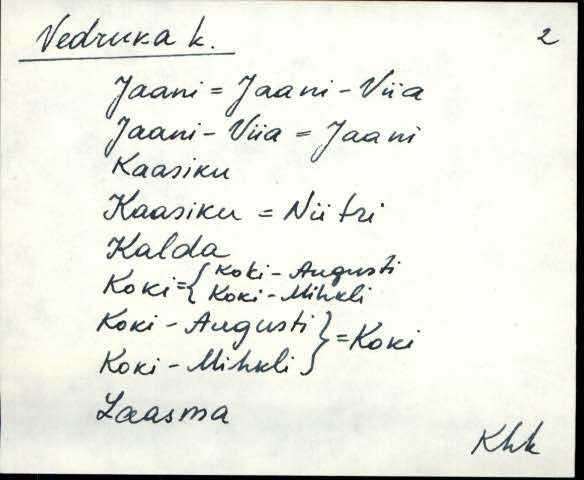 Vedruka k. 2
Jaani = Jaani - Viia
Jaani - Viia = Jaani
Kaasiku
Kaasiku = Niitri
Kalda
Koki = { Koki - Augusti
Koki - Mihkli
Koki - Augusti } = Koki
Koki - Mihkli
Laasma
Khk